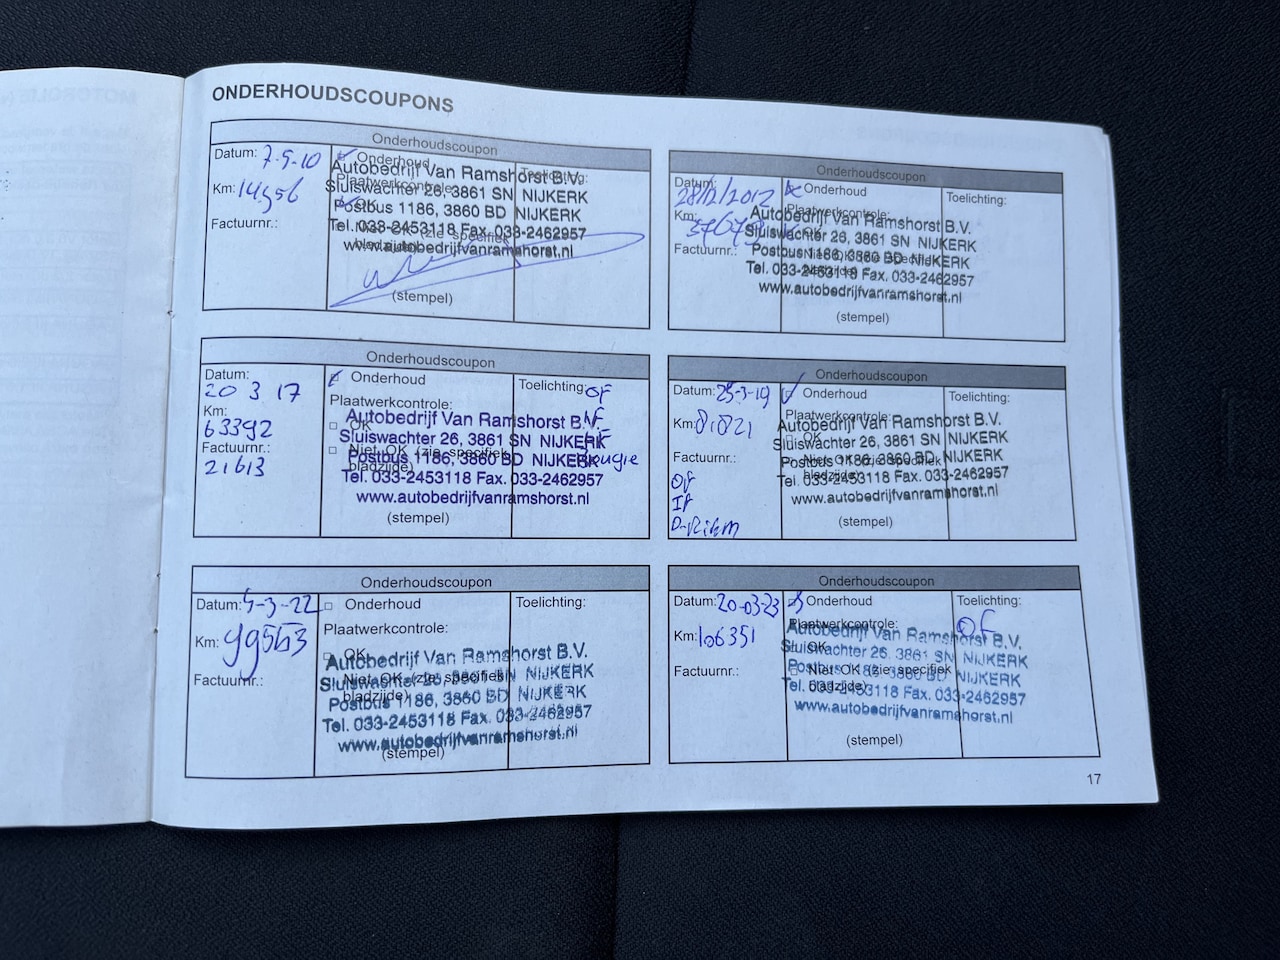 ONDERHOUDSCOUPONS
Onderhoudscoupon
Datum: 7-9-10
Onderhoud
Toelichting:
Plaatwerkcontrole:
Km: 14956
OK
Factuurnr.:
Autobedrijf Van Ramshorst B.V.
Sluiswachter 26, 3861 SN NIJKERK
Postbus 1186, 3860 BD NIJKERK
Tel. 033-2453118 Fax. 033-2462957
www.autobedrijfvanramshorst.nl
(stempel)
Onderhoudscoupon
Datum: 28/12/2012
Onderhoud
Toelichting:
Plaatwerkcontrole:
Km:
OK
Factuurnr.:
Autobedrijf Van Ramshorst B.V.
Sluiswachter 26, 3861 SN NIJKERK
Postbus 1186, 3860 BD NIJKERK
Tel. 033-2453118 Fax. 033-2462957
www.autobedrijfvanramshorst.nl
(stempel)
Onderhoudscoupon
Datum:
20 3 17
Onderhoud
Toelichting: OF
Plaatwerkcontrole:
Km:
63392
OK
Factuurnr.:
21613
Niet OK (zie specifiek
bladzijde)
Autobedrijf Van Ramshorst B.V.
Sluiswachter 26, 3861 SN NIJKERK
Postbus 1186, 3860 BD NIJKERK
Tel. 033-2453118 Fax. 033-2462957
www.autobedrijfvanramshorst.nl
Bougie
(stempel)
Onderhoudscoupon
Datum: 25-3-19
Onderhoud
Toelichting:
Plaatwerkcontrole:
Km: 81821
OK
Factuurnr.:
Niet OK (zie specifiek
bladzijde)
Autobedrijf Van Ramshorst B.V.
Sluiswachter 26, 3861 SN NIJKERK
Postbus 1186, 3860 BD NIJKERK
Tel. 033-2453118 Fax. 033-2462957
www.autobedrijfvanramshorst.nl
Of
If
D-Riem
(stempel)
Onderhoudscoupon
Datum: 4-3-22
Onderhoud
Toelichting:
Plaatwerkcontrole:
Km: 99563
OK
Factuurnr.:
Niet OK (zie specifiek
bladzijde)
Autobedrijf Van Ramshorst B.V.
Sluiswachter 26, 3861 SN NIJKERK
Postbus 1186, 3860 BD NIJKERK
Tel. 033-2453118 Fax. 033-2462957
www.autobedrijfvanramshorst.nl
(stempel)
Onderhoudscoupon
Datum: 20-03-23
Onderhoud
Toelichting:
OF
Plaatwerkcontrole:
Km: 106351
OK
Factuurnr.:
Niet OK (zie specifiek
bladzijde)
Autobedrijf Van Ramshorst B.V.
Sluiswachter 26, 3861 SN NIJKERK
Postbus 1186, 3860 BD NIJKERK
Tel. 033-2453118 Fax. 033-2462957
www.autobedrijfvanramshorst.nl
(stempel)
17